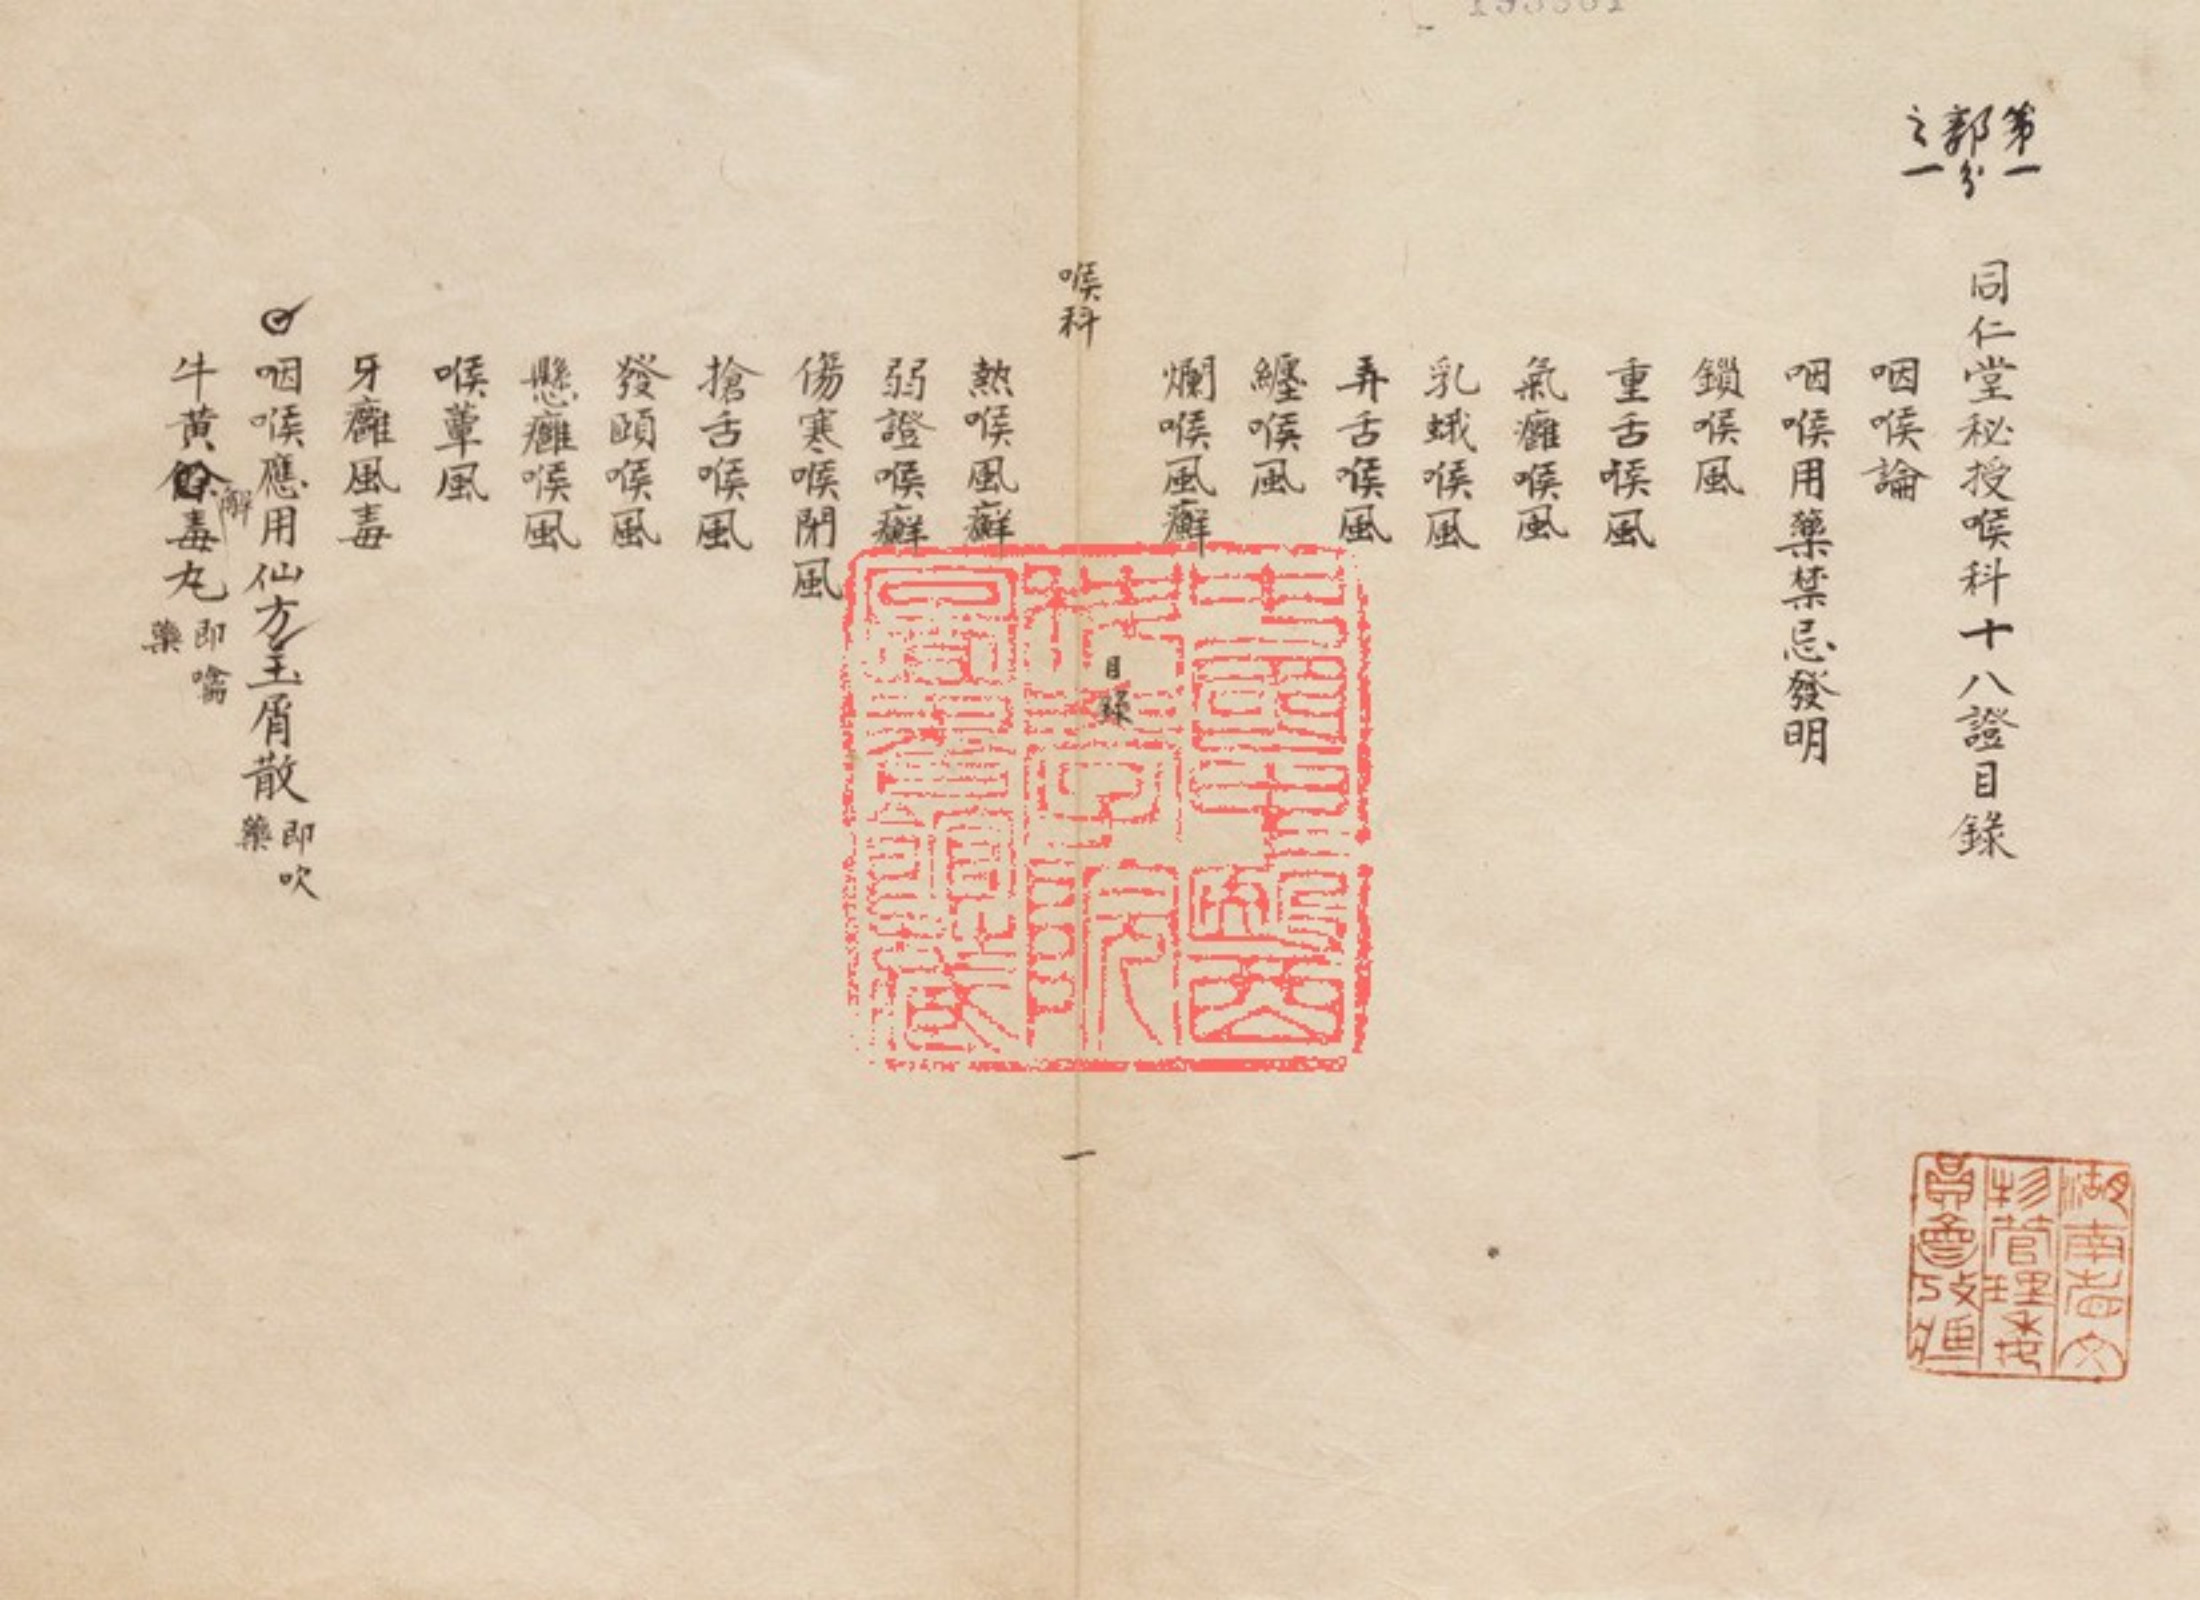 第一
部分
之一
同仁堂秘授喉科十八證目錄
咽喉論
咽喉用藥禁忌發明
鎖喉風
重舌喉風
氣癰喉風
乳蛾喉風
弄舌喉風
纏喉風
爛喉風癬
喉科
目錄
一
熱喉風癬
弱證喉癬
傷寒喉閉風
搶舌喉風
發頤喉風
懸癰喉風
喉蕈風
牙癰風毒
咽喉應用仙方
玉屑散 即吹藥
牛黃解毒丸 即噙藥
湖南省文
物管理委
員會收